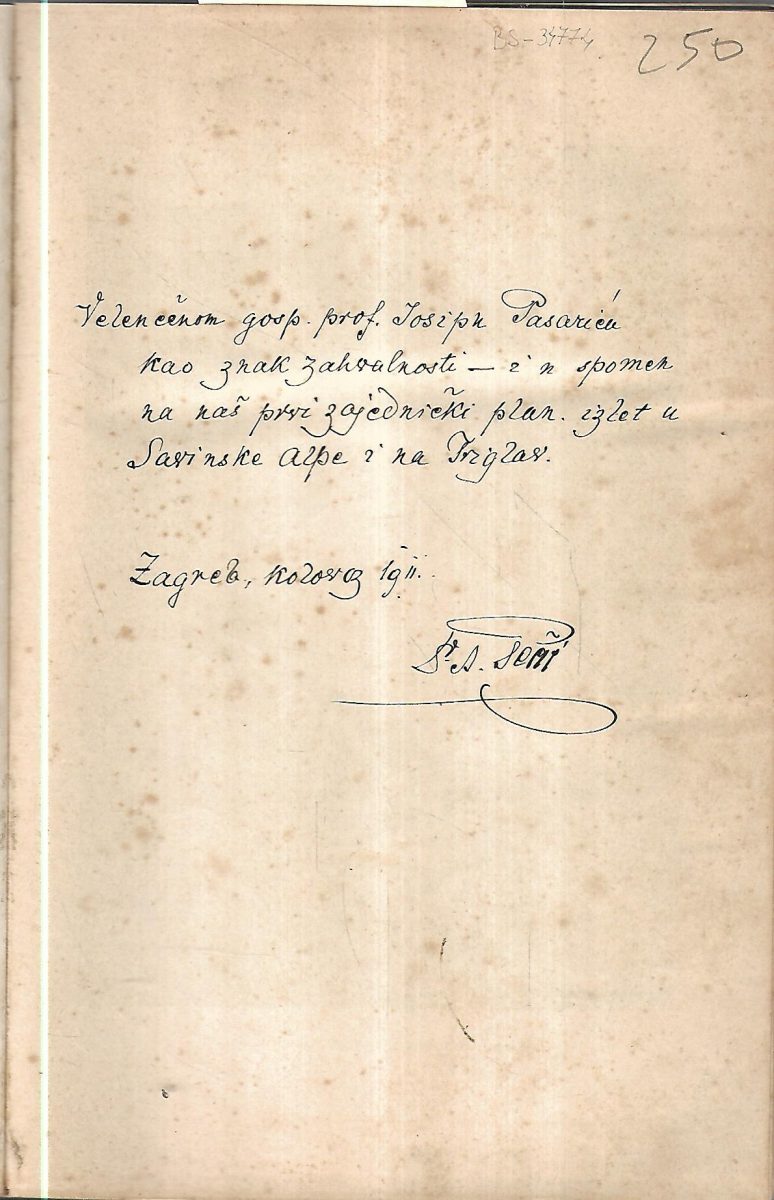 BS-34774
250
Velenčenom gosp. prof. Josipu Pasariću
kao znak zahvalnosti — i u spomen
na naš prvi zajednički plan. izlet u
Savinske Alpe i na Triglav.
Zagreb, kolovoz 1911.
Dr. A.